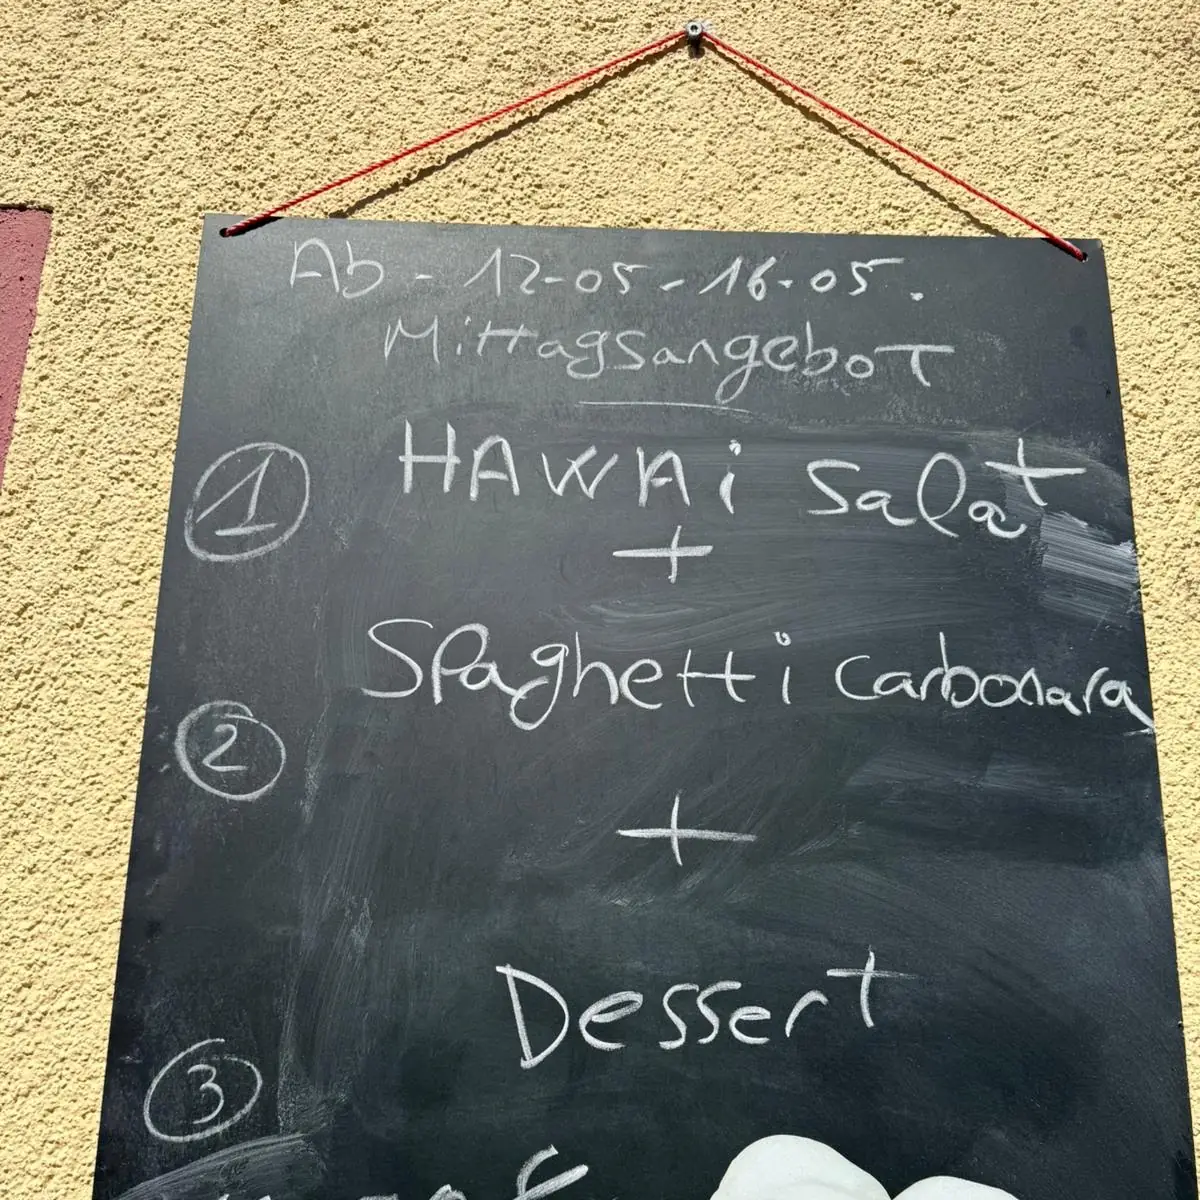 Ab - 12-05 - 16-05.
Mittagsangebot
① HAWAi Salat
+
Spaghetti carbonara
②
+
Dessert
③